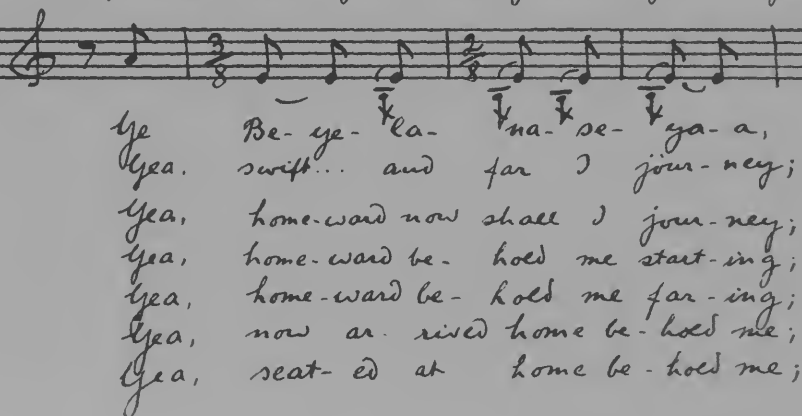 3/8 2/8
Ye Be-ye-la-na-se-ya-a,
Yea, swift... and far I jour-ney;
Yea, home-ward now shall I jour-ney;
Yea, home-ward be-hold me start-ing;
Yea, home-ward be-hold me far-ing;
Yea, now ar-rived home be-hold me;
Yea, seat-ed at home be-hold me;